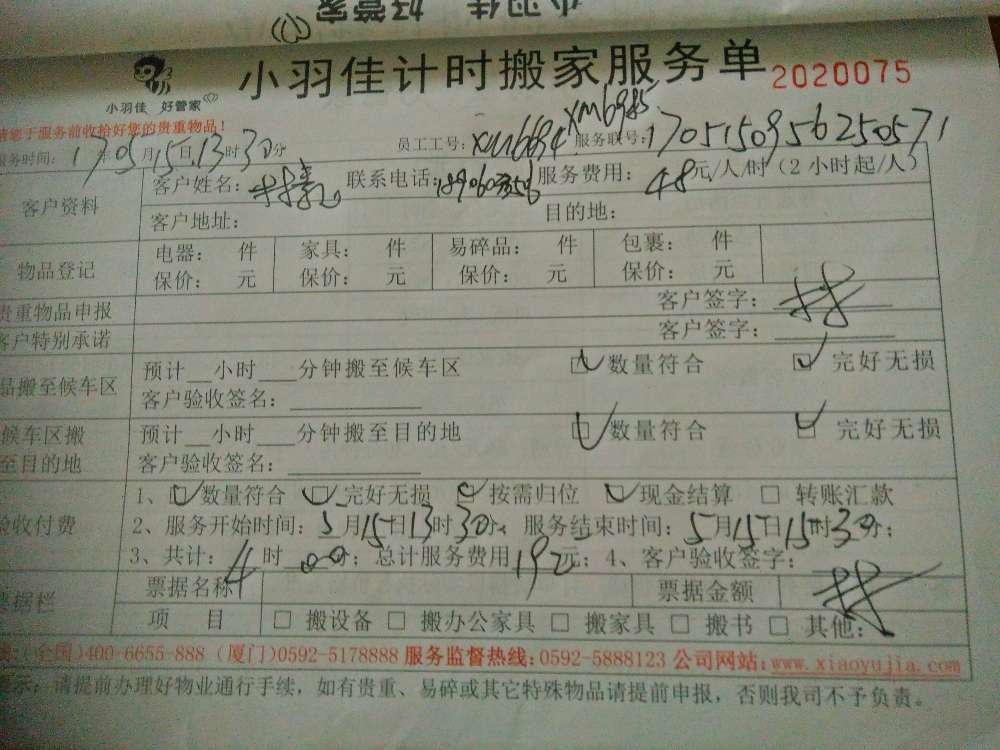 小羽佳 好管家
小羽佳 好管家
小羽佳计时搬家服务单 2020075
请您于服务前收拾好您的贵重物品！
服务时间：17年05月15日13时30分 员工工号：xm6694 xm6985 服务联号：1705150956250571
客户资料 客户姓名： 联系电话： 服务费用：48元/人/时（2小时起/人）
客户地址： 目的地：
物品登记 电器： 件 家具： 件 易碎品： 件 包裹： 件
保价： 元 保价： 元 保价： 元 保价： 元
贵重物品申报 客户签字：
客户特别承诺 客户签字：
品搬至候车区 预计__小时___分钟搬至候车区 ☑数量符合 ☑完好无损
客户验收签名：
候车区搬至目的地 预计__小时___分钟搬至目的地 ☑数量符合 ☑完好无损
客户验收签名：
验收付费 1、☑数量符合 ☑完好无损 ☑按需归位 ☑现金结算 □转账汇款
2、服务开始时间：5月15日13时30分；服务结束时间：5月15日15时30分；
3、共计：4时00分；总计服务费用192元；4、客户验收签字：
票据栏 票据名称 票据金额
项 目 □搬设备 □搬办公家具 □搬家具 □搬书 □其他：
(全国)400-6655-888 (厦门)0592-5178888 服务监督热线：0592-5888123 公司网站：www.xiaoyujia.com
提示：请提前办理好物业通行手续，如有贵重、易碎或其它特殊物品请提前申报，否则我司不予负责。